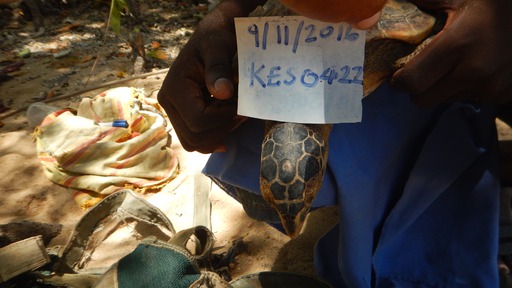 9/11/2016
KES0422